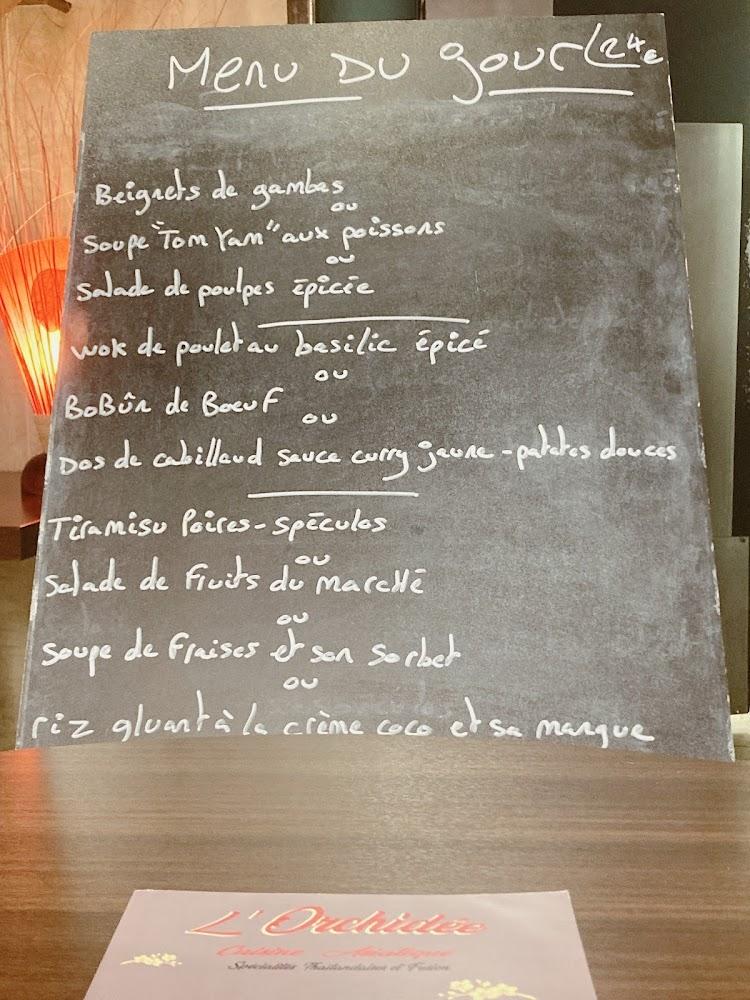 Menu Du gour 24€
Beignets de gambas
ou
Soupe "Tom Yam" aux poissons
ou
Salade de poulpes épicée
wok de poulet au basilic épicé
ou
BoBûn de Boeuf
ou
Dos de cabillaud sauce curry jaune - patates douces
Tiramisu Poires - spéculos
ou
Salade de Fruits du marché
ou
Soupe de Fraises et son sorbet
ou
riz gluant à la crème coco et sa mangue
L'Orchidée
Cuisine Asiatique
Spécialités Thaïlandaises et Fusion